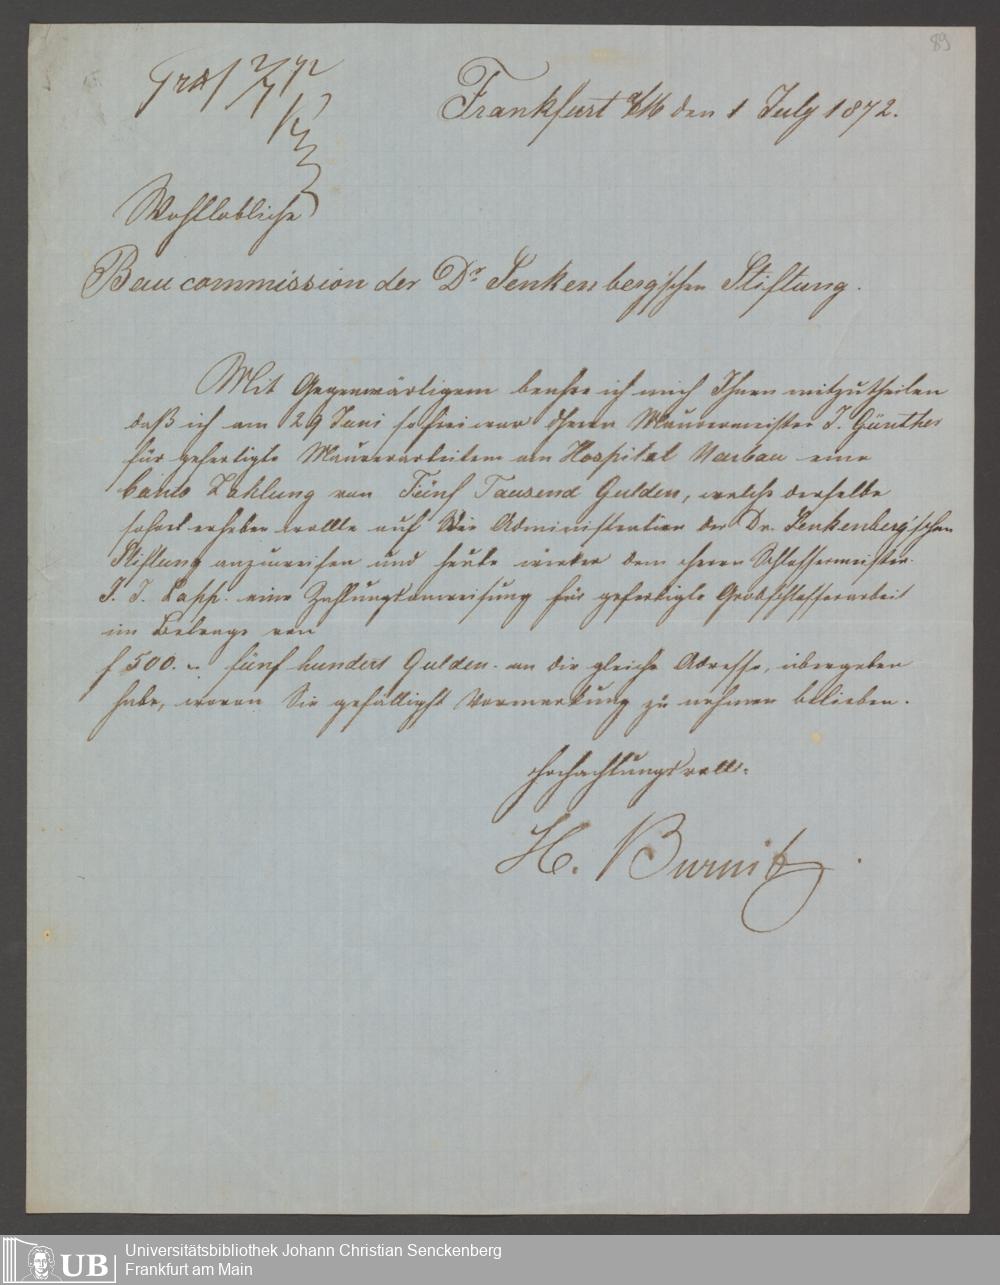 89
Frankfurt a/M den 1 July 1872.
Wohllöbliche
Baucommission der Dr. Senkenberg'schen Stiftung.
Mit Gegenwärtigem beehre ich mich Ihnen mitzutheilen
daß ich am 29 Juni so frei war Herrn Maurermeister J. Günther
für gefertigte Maurerarbeiten am Hospital Neubau eine
Conto Zahlung von Fünf Tausend Gulden, welche derselbe
sofort erheben wollte auf die Administration der Dr. Senkenberg'schen
Stiftung anzuweisen und heute wieder dem Herrn Schlossermeister
J. J. Lapp. eine Zahlungsanweisung für gefertigte Grobschlosserarbeit
im Betrage von
f 500. – fünf hundert Gulden. an die gleiche Adresse, übergeben
habe, wovon Sie gefälligst Vormerkung zu nehmen belieben.
Hochachtungsvoll.
H. Burnitz.
UB
Universitätsbibliothek Johann Christian Senckenberg
Frankfurt am Main